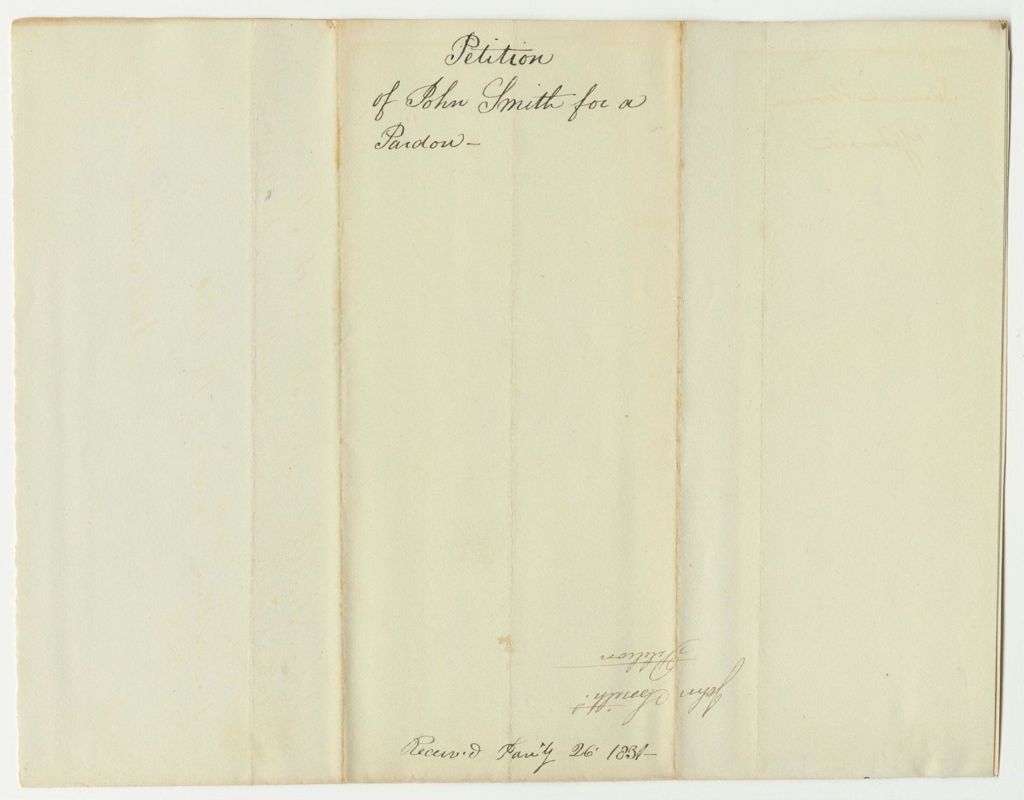 Petition
of John Smith for a
Pardon –
John Smith's
Petition
Receiv'd Jan'y 26 1831–